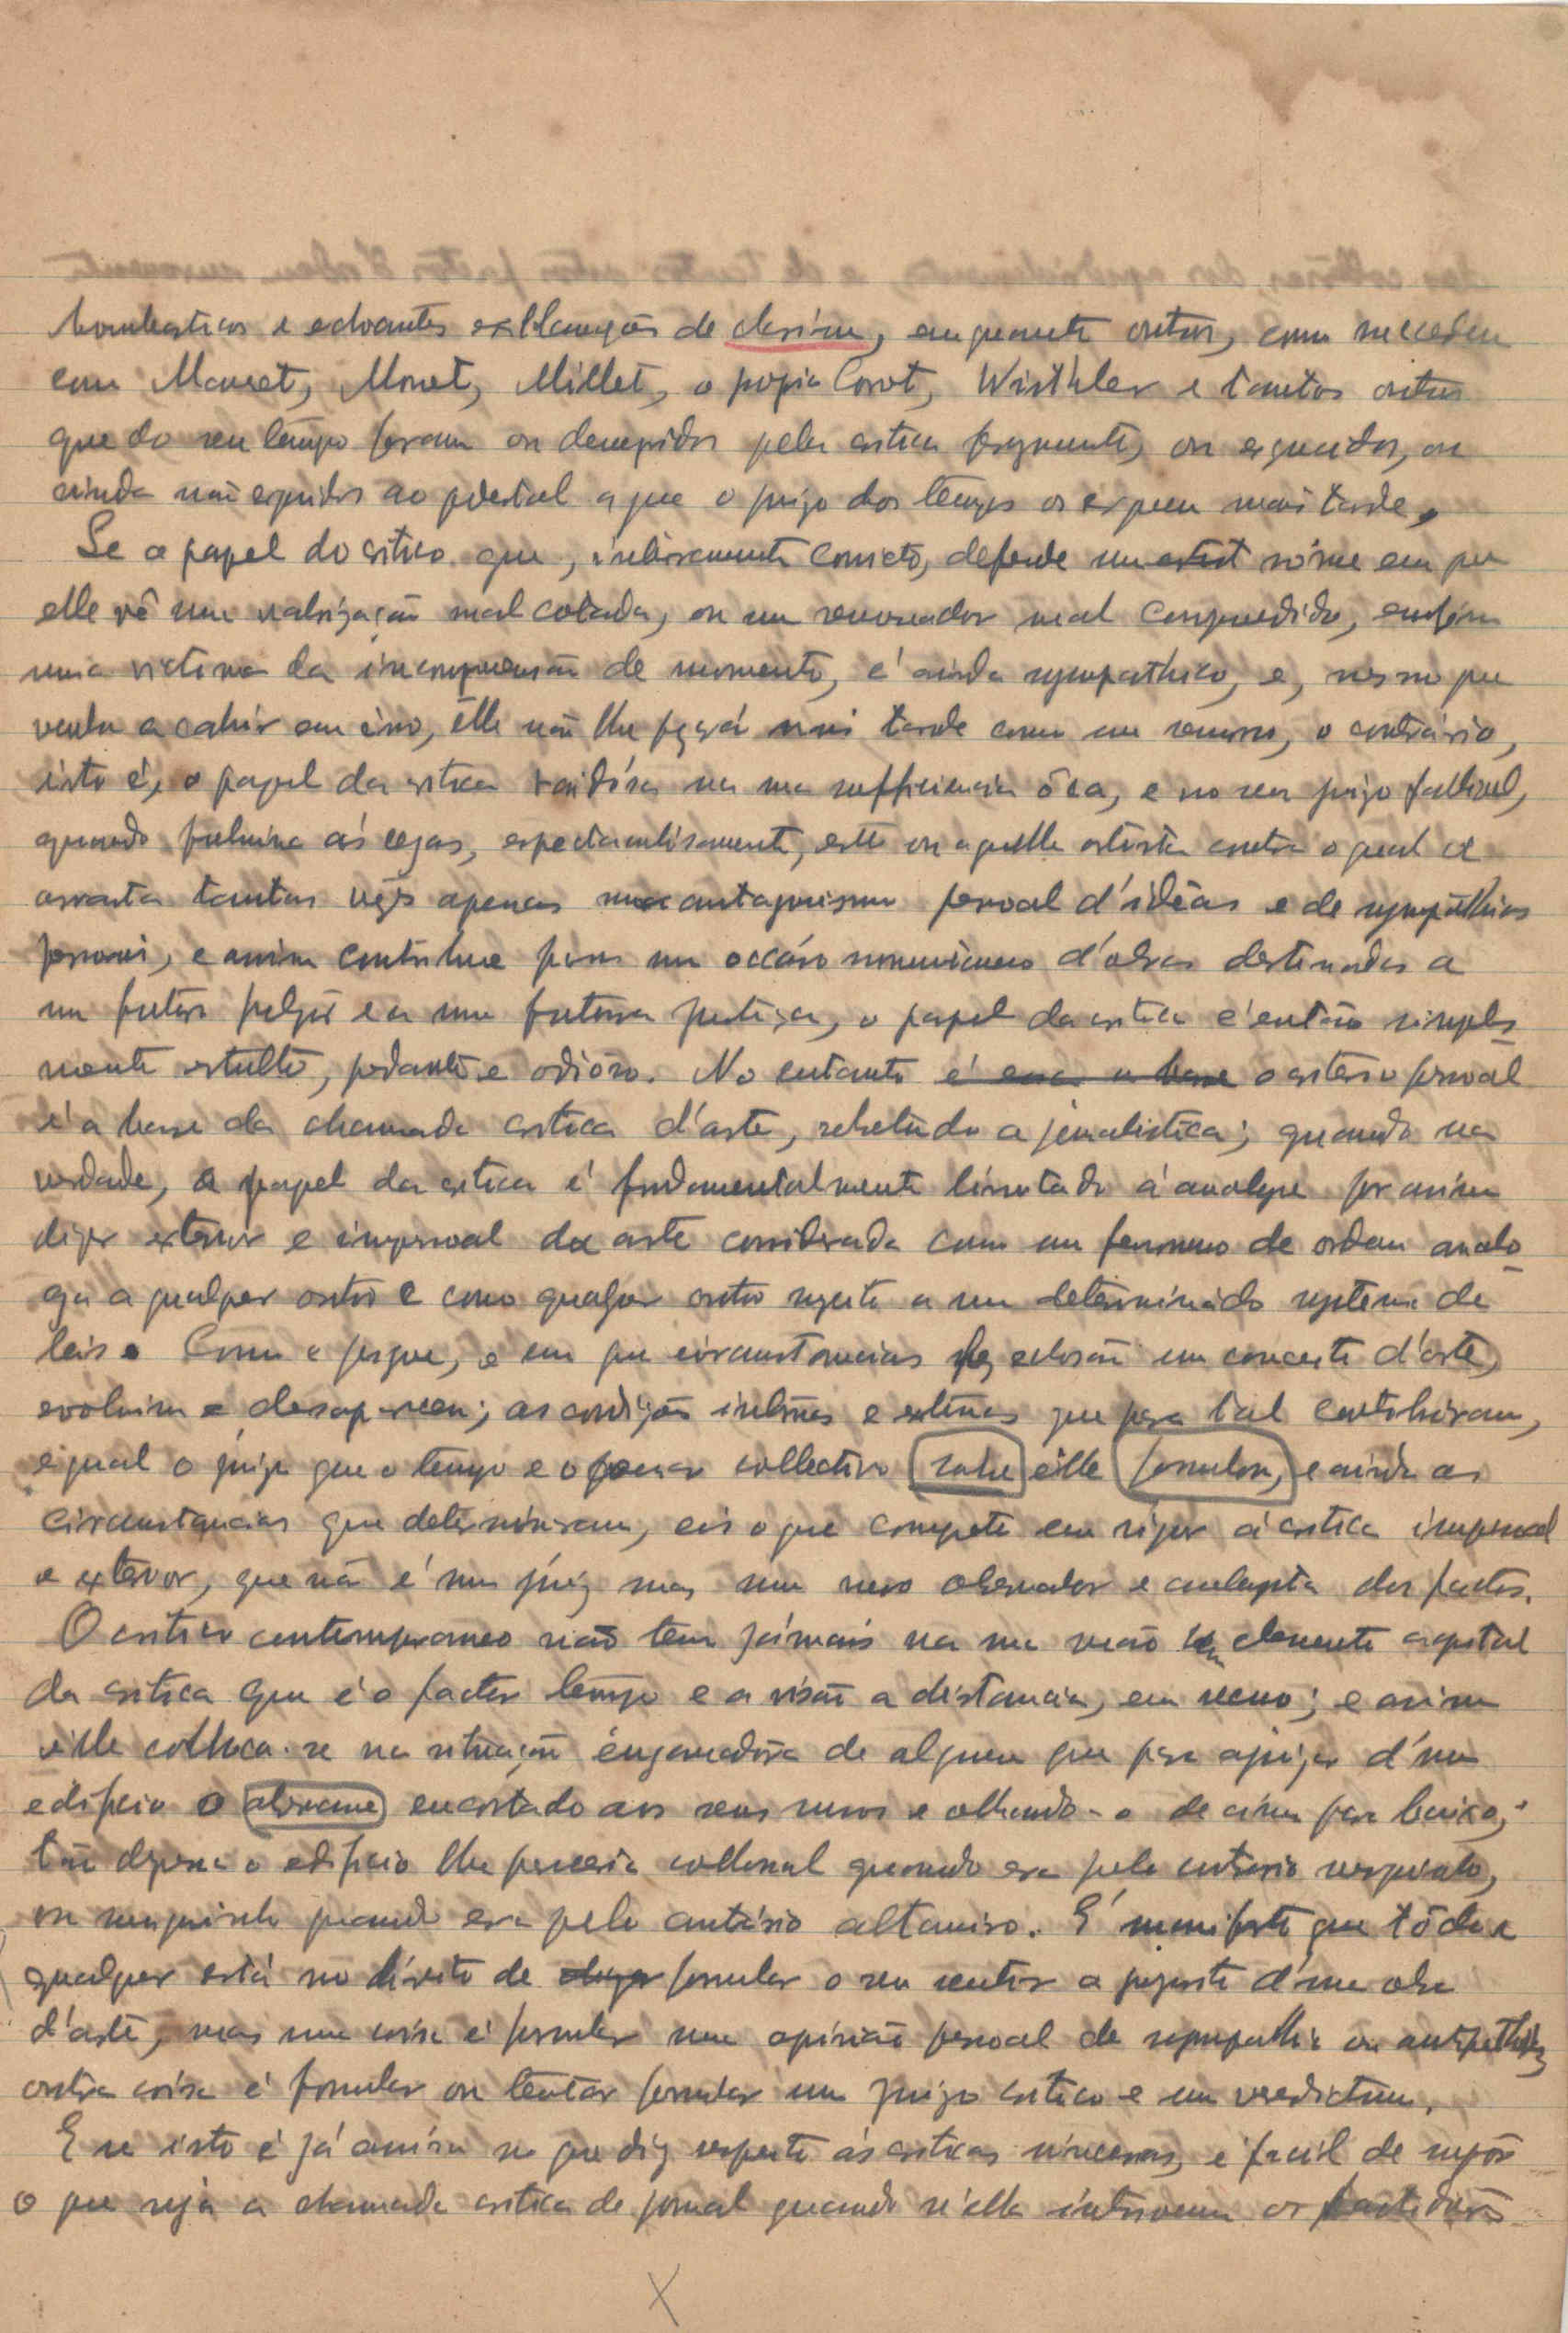 bombasticas e echoantes exllamações de clarim, emquanto outros, como succedeu
com Mauset, Monet, Millet, o propio Corot, Wisthler e tantos outros
que do seu tempo foram ou denegridos pela critica fregmente, ou esquecidos, ou
ainda não erguidos ao pedestal a que o juizo dos tempos os ergueu mais tarde.
Se o papel do critico que, inteiramente correcto, defende um nome em que
elle vê uma valorização mal cotada, ou um renovador mal comprendido, emfim
uma victima da incomprensão de momento, é ainda sympathico, e, mesmo que
venha a cahir em êrro, êlle não lhe pezará mais tarde como um remorso, o contrário,
isto é, o papel da critica vaidósa na sua sufficiencia ôca, e no seu juizo fallivel,
quando fulmina ás cegas, espectaculosamente, este ou aquelle artista contra o qual a
arrasta tantas vezes apenas um antagonismo pessoal d'idêas e de sympathias
pessoais, e assim contribue para um occáso momentaneo d'obras destinadas a
um futuro fulgôr e a uma futura justiça, o papel da critica é então simples-
mente estulto, pedante e odioso. No entanto é essa a base o criterio pessoal
é a base da chamada critica d'arte, sobretudo a jornalistica; quando na
verdade, o papel da critica é fundamentalmente limitado á analyse por assim
dizer exterior e impessoal da arte considerada como um fenomeno de ordem analo-
ga a qualquer outro e como qualquer outro sujeito a um determinado systema de
leis. Como e porque, e em que circunstancias fez eclosão um conceito d'arte,
evoluiu e desapareceu; as condições internas e externas que para tal contribuiram,
e qual o juizo que o tempo e o pensar collectivo sobre êlle formulou, e ainda as
circunstancias que determinaram, eis o que compete em rigor á critica impessoal
e exterior, que não é um juiz mas um mero observador e analysta dos factos.
O critico contemporaneo não tem jámais na sua mão um elemento capital
da critica que é o factor tempo e a visão a distancia, em recuo; e assim
êlle colloca-se na situação enganadora de alguem que para ajuizar d'um
edificio o observasse encostado aos seus muros e olhando-o de cima para baixo;
tão depressa o edificio lhe pareceria collossal quando era pelo contrario mesquinho,
ou mesquinho quando era pelo contrário altaneiro. É manifesto que tôdo e
qualquer está no direito de dizer formular o seu sentir a proposito d'uma obra
d'arte, mas uma coisa é formular uma opinião pessoal de sympathia ou antipathia,
outra coisa é formular ou tentar formular um juizo critico e um veredictum.
E se isto é já assim no que diz respeito ás criticas sinceras, é facil de supôr
o que seja a chamada critica de jornal quando n'ella intervem os partidarios